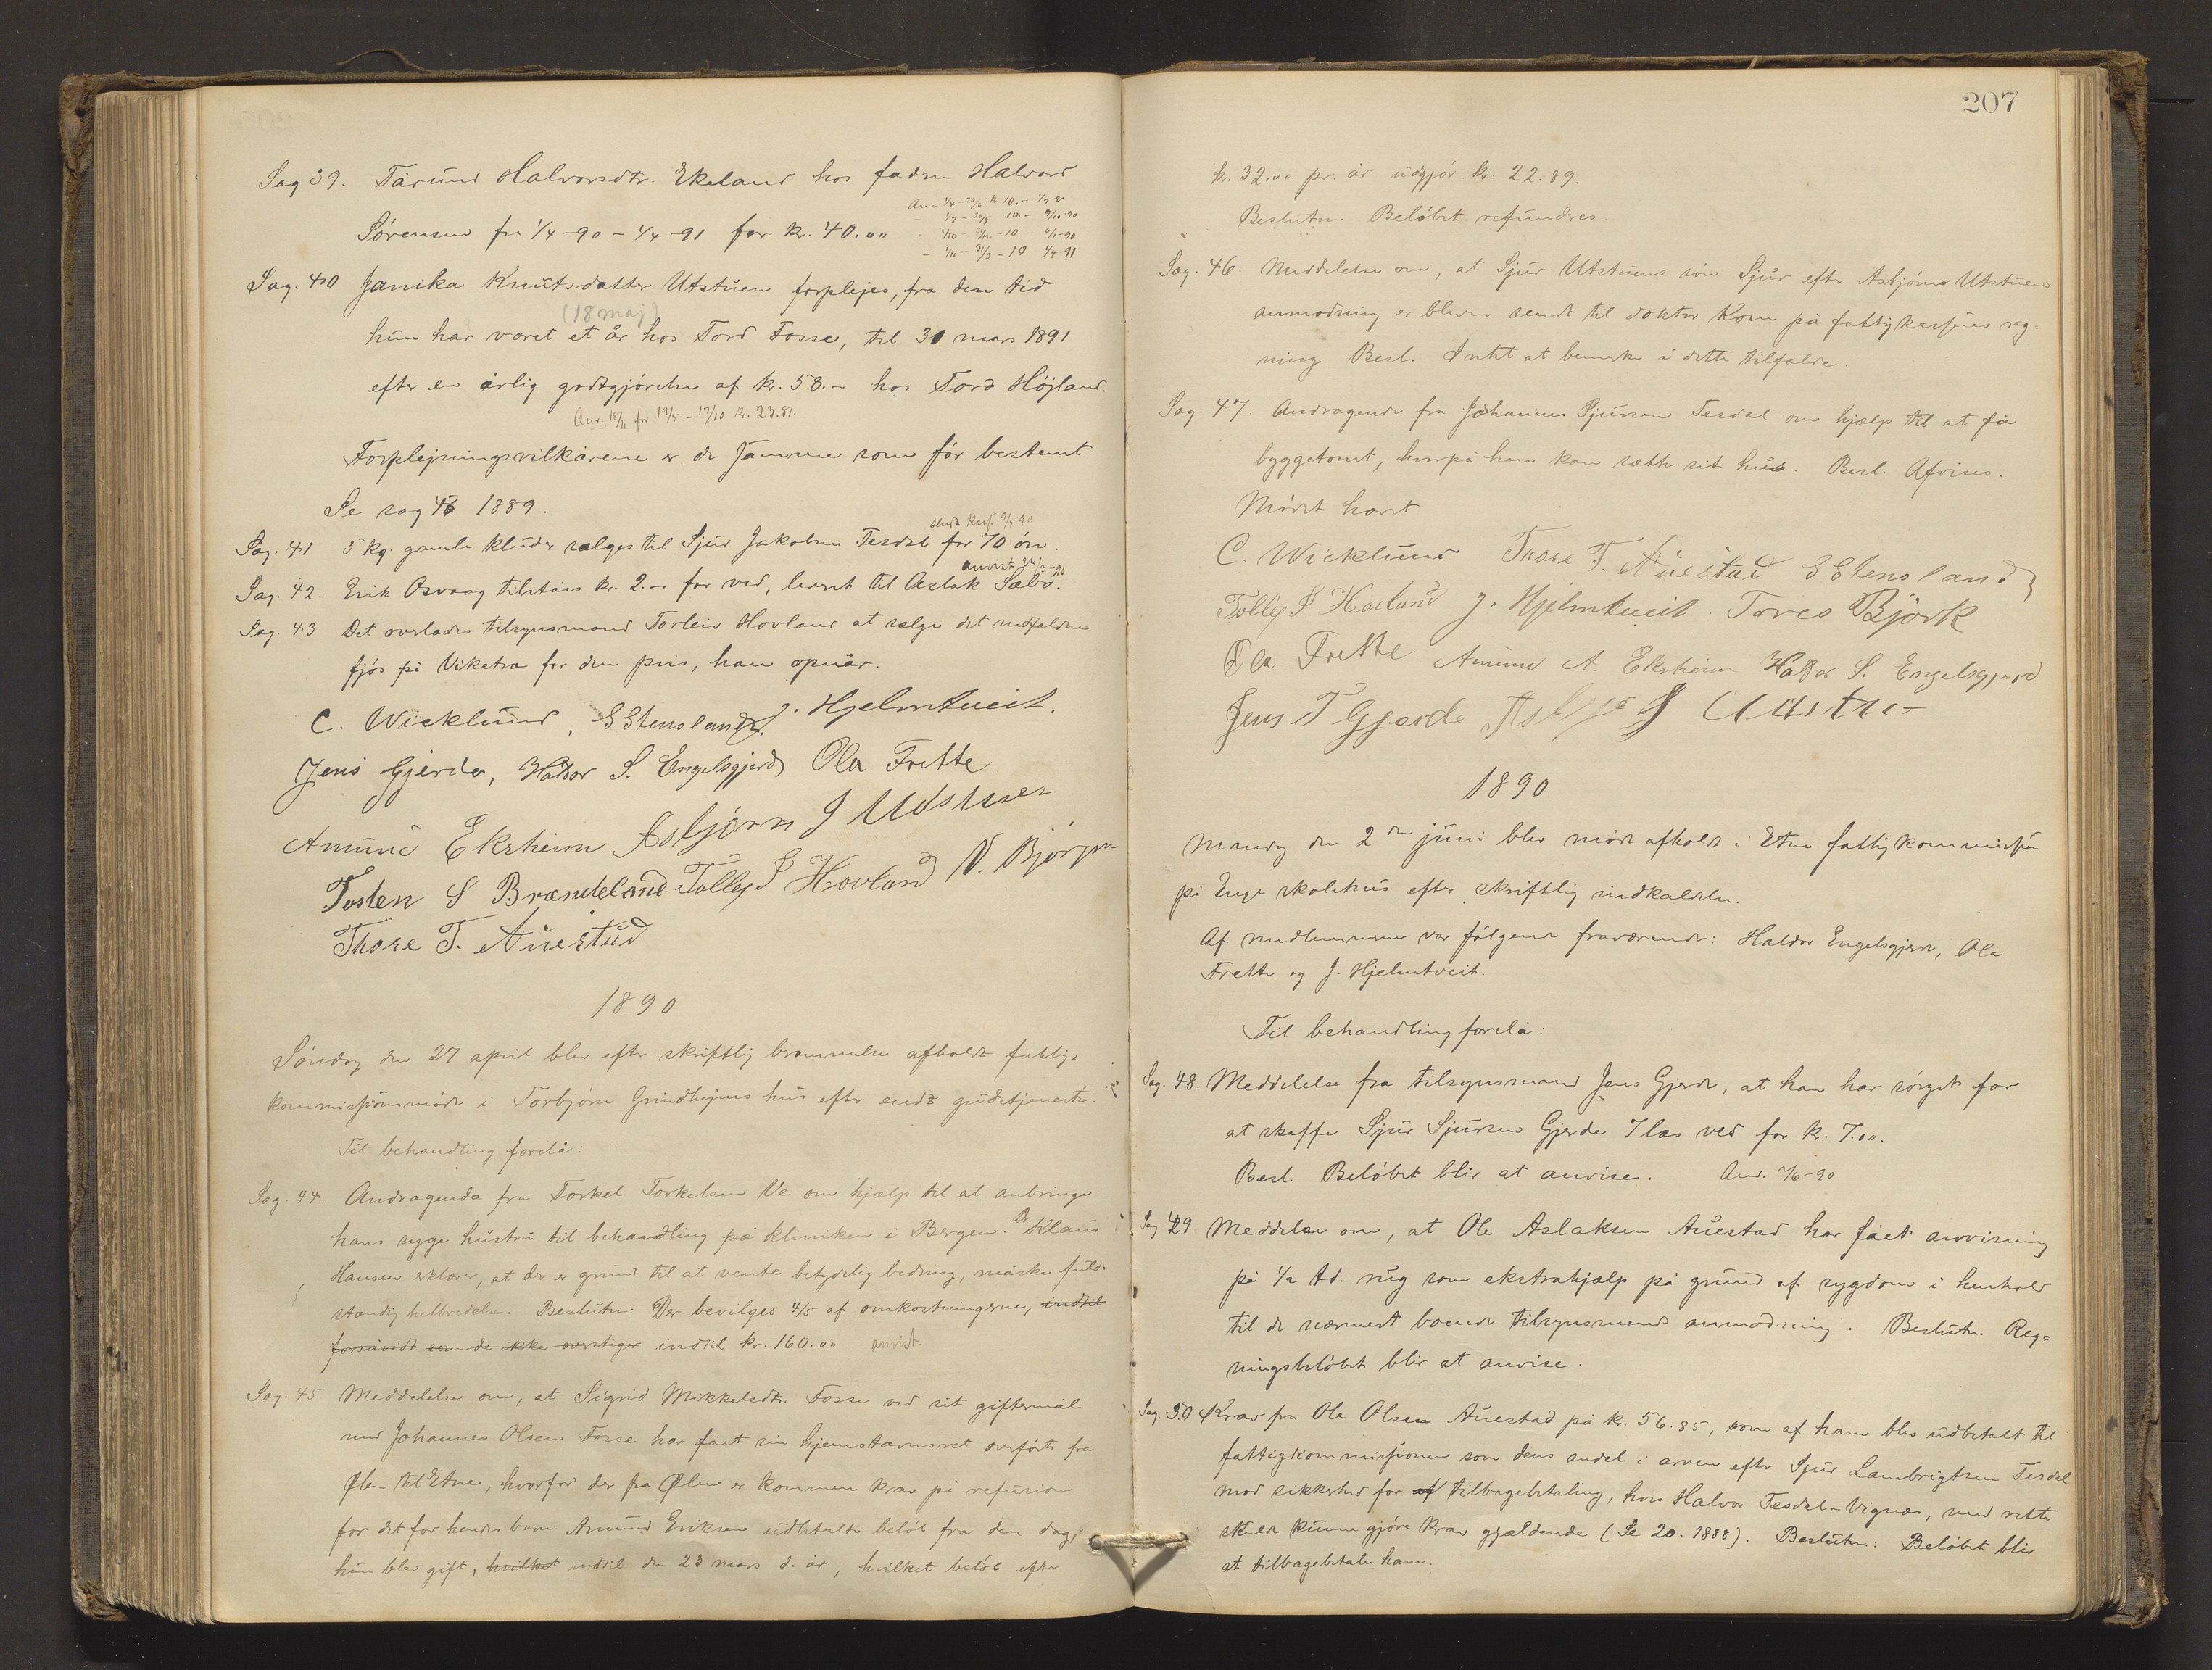 Sag 39. Tarund Halvorsdtr. Ekeland hos faderen Halvard
Anv. 1/4-30/6 kr. 10.-
1/7-30/9 10.- 9/10-90
Sørensen fra 1/4-90 - 1/4-91 for kr. 40.00
1/10-31/12-10
1/1-31/3-10 1/4-91
Sag. 40 Janika Knutsdatter Utstuen forplejes, fra den tid
(18 maj)
hun har været et år hos Tord Fosse, til 31 mars 1891
efter en årlig godtgjørelse af kr. 58.- hos Tord Højland.
Anv. 18/11 for 19/5-17/10 kr. 23.81.
Forplejningsvilkårene er de samme som før bestemt
Se sag 46 1889.
sendt kass. 9/5 90
Sag. 41 5 kg. gamle kluder sælges til Sjur Jakobsen Tesdal for 70 øre.
anvist 26/3-90
Sag. 42. Erik Osvaag tilståes kr. 2.- for ved, leveret til Aslak Sæbø.
Sag. 43 Det overlades tilsynsmand Torleiv Hovland at sælge det nedfaldne
fjøs på Viketræ for den pris, han opnår.
C. Wicklund, E Stensland, J. Hjelmtveit.
Jens Gjerde, Haldor S. Engelsgjerd Ola Frette
Amund Eksheim Asbjørn J Udstuen
Tosten S Brændeland Tollef S Hovland N. Björgen
Thore T. Auestad
1890
Söndag den 27 april blev efter skriftlig berammelse afholdt fattig-
kommissionsmøde i Torbjørn Grindhejms hus efter endt gudstjeneste.
Til behandling forelå:
Sag. 44. Andragende fra Torkel Torkelsen Ve om hjælp til at anbringe
hans syge hustru til behandling på kliniken i Bergen. Dr. Klaus
Hansen erklærer, at der er grund til at vente betydelig bedring, måske fuld-
stændig helbredelse. Beslutn: Der bevilges 4/5 af omkostningerne, indtil
forsåvidt som de ikke overstiger indtil kr. 160.00 anvist.
Sag. 45 Meddelelse om, at Sigrid Mikkelsdtr. Fosse ved sit giftermål
med Johannes Olsen Fosse har fået sin hjemstavnsret overført fra
Ølen til Etne, hvorfor der fra Ølen er kommen krav på refusion
for det for hendes barn Amund Eriksen udbetalte beløb fra den dag,
hun blev gift, hvilket indtil den 23 mars d. år, hvilket beløb efter
207
kr. 32.00 pr. år udgjør kr. 22.89.
Beslutn. Beløbet refunderes.
Sag. 46. Meddelelse om, at Sjur Utstuens søn Sjur efter Asbjørns Utstuens
anmodning er bleven sendt til doktor Kom på fattigkassens reg-
ning Besl. Intet at bemerke i dette tilfælde.
Sag. 47. Andragende fra Johannes Sjursen Tesdal om hjælp til at få
byggetomt, hvorpå han kan sætte sit hus. Besl. Afvises.
Mødet hævet
C. Wicklund Thore T. Auestad E Stensland
Tollef S Hovland J. Hjelmtveit. Tores Björk
Ola Frette Amund A. Eksheim Haldor S. Engelsgjerd
Jens T Gjerde Asbjørn J Udstuen
1890
Mandag den 2den juni blev møde afholdt i Etne fattigkommission
på Enge skolehus efter skriftlig indkaldelse.
Af medlemmerne var følgende fraværende: Haldor Engelsgjerd, Ola
Frette og J. Hjelmtveit.
Til behandling forelå:
Sag. 48. Meddelelse fra tilsynsmand Jens Gjerde, at han har sørget for
at skaffe Sjur Sjursen Gjerde 7 læs ved for kr. 7.00.
Besl. Beløbet blir at anvise. Anv. 7/6-90
Sag 49 Meddelse om, at Ole Aslaksen Auestad har fået anvisning
på 1/2 td. rug som ekstrahjælp på grund af sygdom i henhold
til de nærmest boende tilsynsmænds anmodning. Beslutn. Reg-
ningsbeløbet blir at anvise.
Sag. 50 Krav fra Ole Olsen Auestad på kr. 56.85, som af ham blev udbetalt til
fattigkommissionen som dens andel i arven efter Sjur Lambrigtsen Tesdal
mod sikkerhed for af tilbagebetaling, hvis Halvor Tesdal-Vignæs, med rette
skulde kunne gjøre krav gjældende. (Se 20. 1888). Beslutn.: Beløbet blir
at tilbagebetale ham.